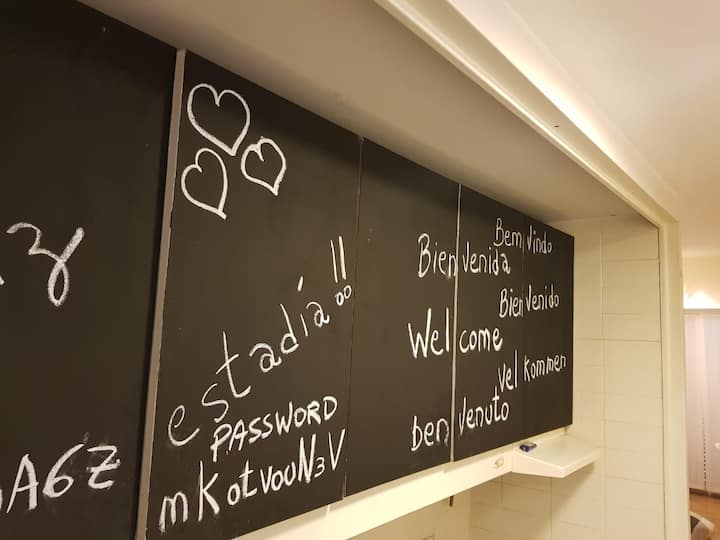 z
A6Z
estadía!!
PASSWORD
mKotvouN3V
Bienvenida
Bem vindo
Bienvenido
Welcome
Velkommen
benvenuto